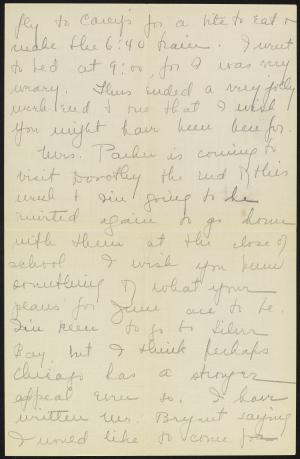 fly to Carey's for a bite to eat &
make the 6:40 train. I went
to bed at 9:00, for I was very
weary. Thus ended a very jolly
week end & one that I wish
you might have been here for.
Mrs. Parker is coming to
visit Dorothy the end of this
week & I'm going to be
invited again to go home
with them at the close of
school. I wish you knew
something of what your
plans for June are to be.
I'm keen to go to Silver
Bay, but I think perhaps
Chicago has a stronger
appeal even so. I have
written Mr. Bryant saying
I would like to come for